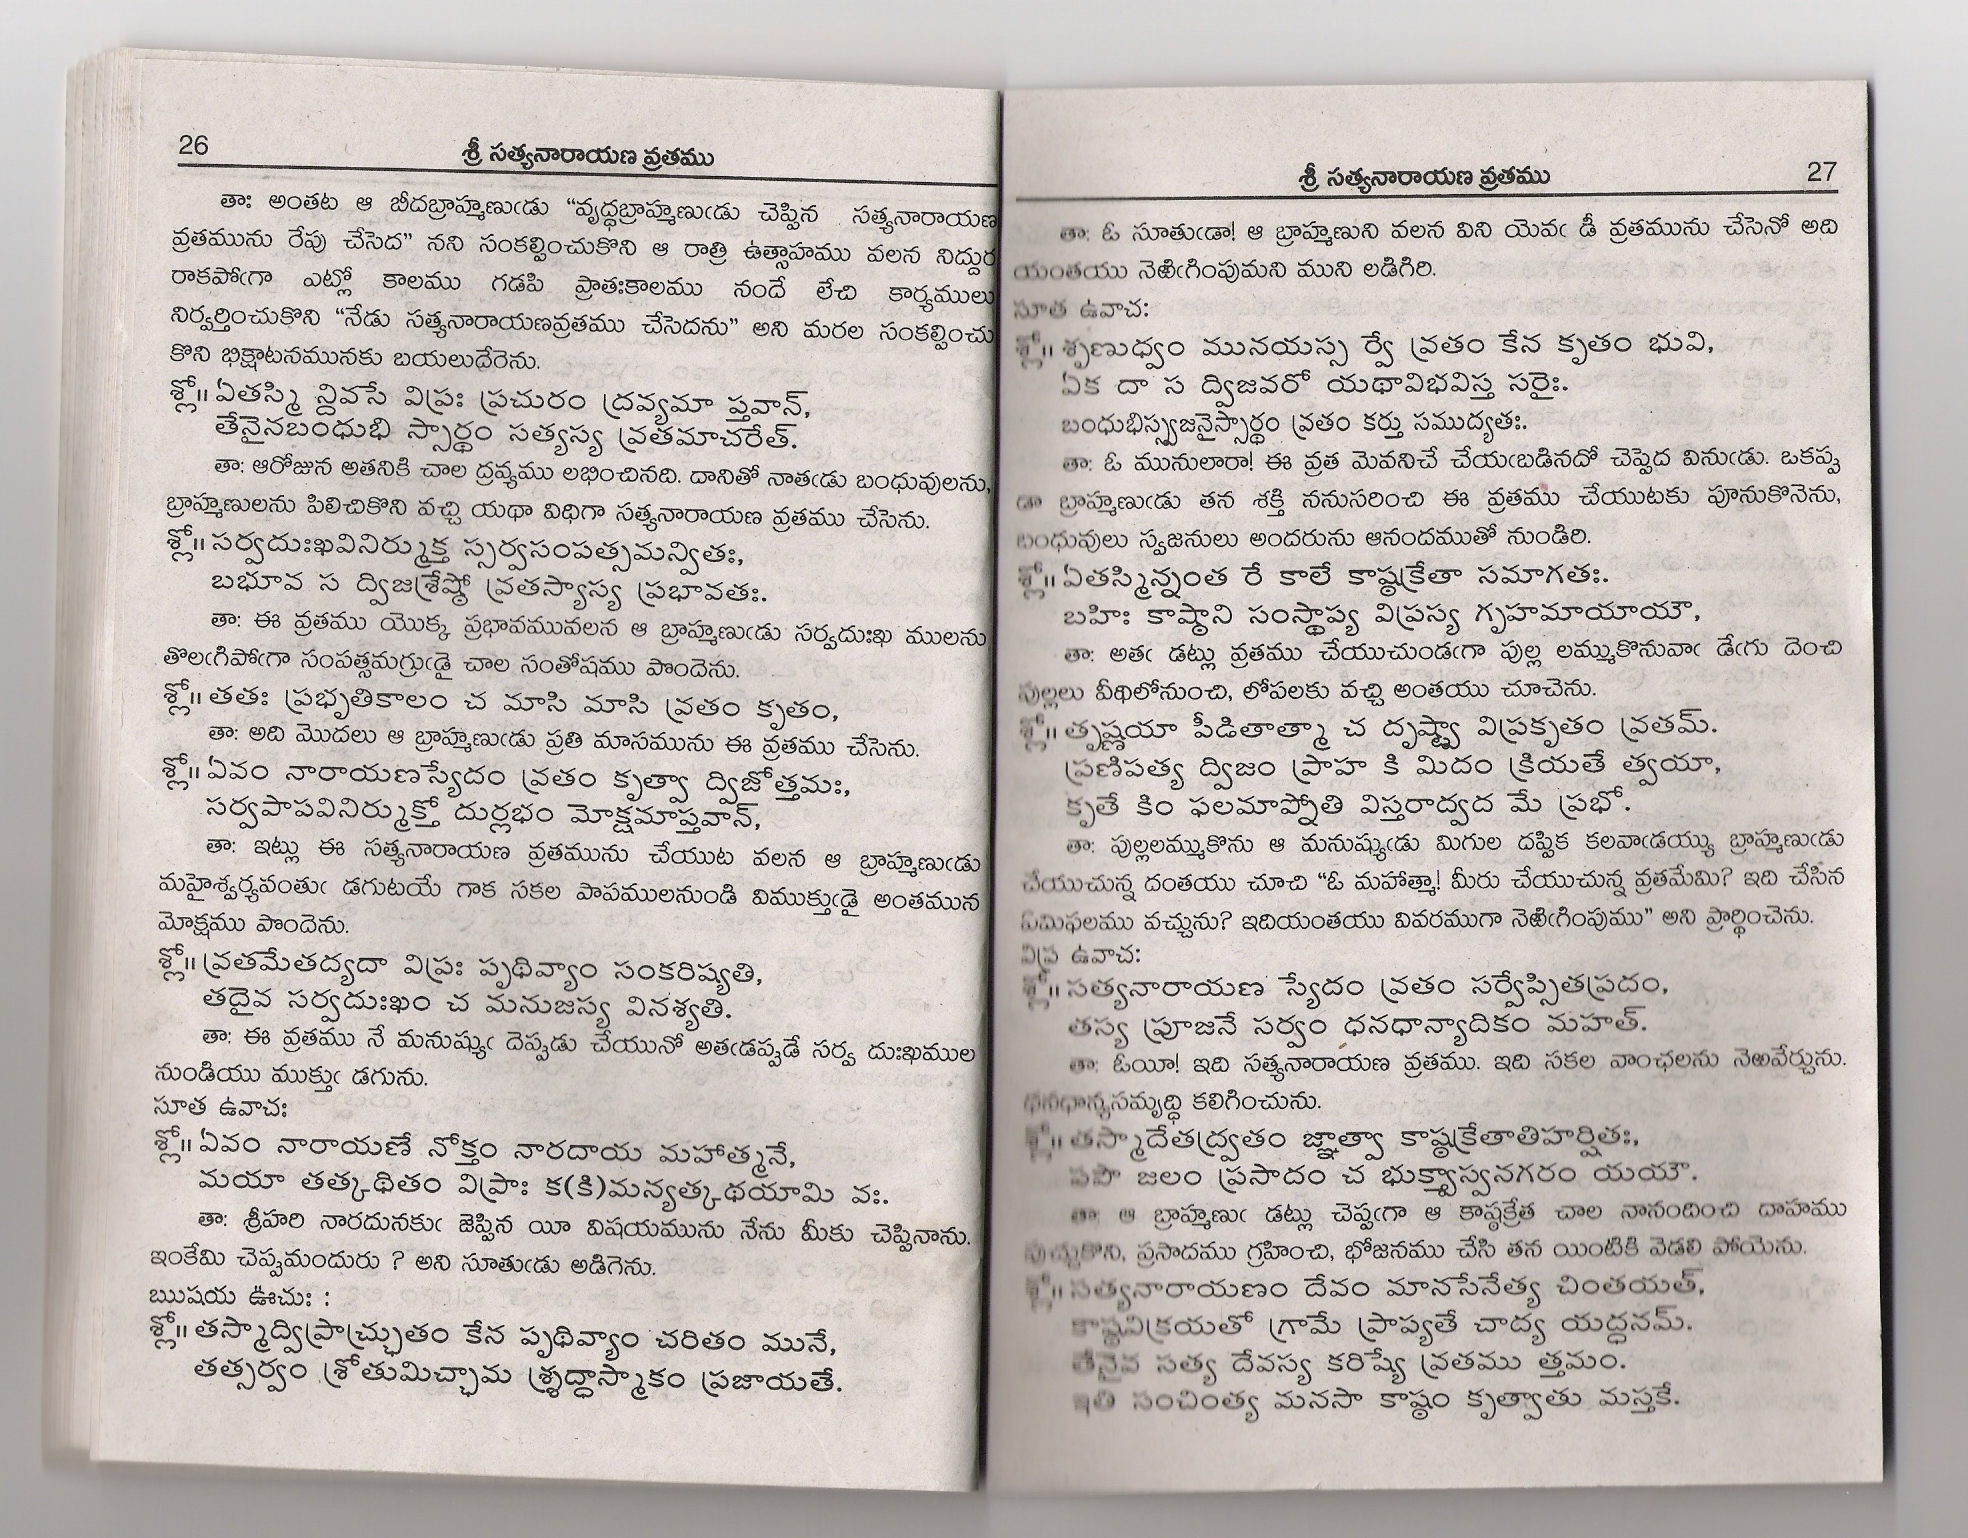 26
శ్రీ సత్యనారాయణ వ్రతము
తాః అంతట ఆ బీదబ్రాహ్మణుఁడు “వృద్ధబ్రాహ్మణుఁడు చెప్పిన సత్యనారాయణ
వ్రతమును రేపు చేసెద” నని సంకల్పించుకొని ఆ రాత్రి ఉత్సాహము వలన నిద్దుర
రాకపోఁగా ఎట్లో కాలము గడపి ప్రాతఃకాలము నందే లేచి కార్యములు
నిర్వర్తించుకొని “నేడు సత్యనారాయణవ్రతము చేసెదను” అని మరల సంకల్పించు
కొని భిక్షాటనమునకు బయలుదేరెను.
శ్లో॥ ఏతస్మి న్దివసే విప్రః ప్రచురం ద్రవ్యమా ప్తవాన్,
తేనైనబంధుభి స్సార్థం సత్యస్య వ్రతమాచరేత్.
తా: ఆరోజున అతనికి చాల ద్రవ్యము లభించినది. దానితో నాతఁడు బంధువులను,
బ్రాహ్మణులను పిలిచికొని వచ్చి యథా విధిగా సత్యనారాయణ వ్రతము చేసెను.
శ్లో॥ సర్వదుఃఖవినిర్ముక్త స్సర్వసంపత్సమన్వితః,
బభూవ స ద్విజశ్రేష్ఠో వ్రతస్యాస్య ప్రభావతః.
తా: ఈ వ్రతము యొక్క ప్రభావమువలన ఆ బ్రాహ్మణుఁడు సర్వదుఃఖ ములను
తొలఁగిపోఁగా సంపత్సమగ్రుఁడై చాల సంతోషము పొందెను.
శ్లో॥ తతః ప్రభృతికాలం చ మాసి మాసి వ్రతం కృతం,
తా: అది మొదలు ఆ బ్రాహ్మణుఁడు ప్రతి మాసమును ఈ వ్రతము చేసెను.
శ్లో॥ ఏవం నారాయణస్యేదం వ్రతం కృత్వా ద్విజోత్తమః,
సర్వపాపవినిర్ముక్తో దుర్లభం మోక్షమాప్తవాన్,
తా: ఇట్లు ఈ సత్యనారాయణ వ్రతమును చేయుట వలన ఆ బ్రాహ్మణుఁడు
మహైశ్వర్యవంతుఁ డగుటయే గాక సకల పాపములనుండి విముక్తుఁడై అంతమున
మోక్షము పొందెను.
శ్లో॥ వ్రతమేతద్యదా విప్రః పృథివ్యాం సంకరిష్యతి,
తదైవ సర్వదుఃఖం చ మనుజస్య వినశ్యతి.
తా: ఈ వ్రతము నే మనుష్యుఁ దెప్పడు చేయునో అతఁడప్పడే సర్వ దుఃఖముల
నుండియు ముక్తుఁ డగును.
సూత ఉవాచః
శ్లో॥ ఏవం నారాయణే నోక్తం నారదాయ మహాత్మనే,
మయా తత్కథితం విప్రాః క(కి)మన్యత్కథయామి వః.
తా: శ్రీహరి నారదునకుఁ జెప్పిన యీ విషయమును నేను మీకు చెప్పినాను.
ఇంకేమి చెప్పమందురు ? అని సూతుఁడు అడిగెను.
ఋషయ ఊచుః :
శ్లో॥ తస్మాద్విప్రాచ్ఛ్రుతం కేన పృథివ్యాం చరితం మునే,
తత్సర్వం శ్రోతుమిచ్ఛామ శ్శ్రద్ధాస్మాకం ప్రజాయతే.
శ్రీ సత్యనారాయణ వ్రతము
27
తా: ఓ సూతుఁడా! ఆ బ్రాహ్మణుని వలన విని యెవఁ డీ వ్రతమును చేసెనో అది
యంతయు నెఱిఁగింపుమని ముని లడిగిరి.
సూత ఉవాచ:
శ్లో॥ శృణుధ్వం మునయస్స ర్వే వ్రతం కేన కృతం భువి,
ఏక దా స ద్విజవరో యథావిభవిస్త సరైః.
బంధుభిస్స్వజనైస్సార్థం వ్రతం కర్తు సముద్యతః.
తా: ఓ మునులారా! ఈ వ్రత మెవనిచే చేయఁబడినదో చెప్పెద వినుఁడు. ఒకప్ప
డా బ్రాహ్మణుఁడు తన శక్తి ననుసరించి ఈ వ్రతము చేయుటకు పూనుకొనెను,
బంధువులు స్వజనులు అందరును ఆనందముతో నుండిరి.
శ్లో॥ ఏతస్మిన్నంత రే కాలే కాష్ఠక్రేతా సమాగతః.
బహిః కాష్ఠాని సంస్థాప్య విప్రస్య గృహమాయాయౌ,
తా: అతఁ డట్లు వ్రతము చేయుచుండఁగా పుల్ల లమ్ముకొనువాఁ డేఁగు దెంచి
పుల్లలు వీథిలోనుంచి, లోపలకు వచ్చి అంతయు చూచెను.
శ్లో॥ తృష్ణయా పీడితాత్మా చ దృష్ట్వా విప్రకృతం వ్రతమ్.
ప్రణిపత్య ద్విజం ప్రాహ కి మిదం క్రియతే త్వయా,
కృతే కిం ఫలమాప్నోతి విస్తరాద్వద మే ప్రభో.
తా: పుల్లలమ్ముకొను ఆ మనుష్యుఁడు మిగుల దప్పిక కలవాఁడయ్యు బ్రాహ్మణుఁడు
చేయుచున్న దంతయు చూచి “ఓ మహాత్మా! మీరు చేయుచున్న వ్రతమేమి? ఇది చేసిన
ఏమిఫలము వచ్చును? ఇదియంతయు వివరముగా నెఱిఁగింపుము” అని ప్రార్థించెను.
విప్ర ఉవాచ:
శ్లో॥ సత్యనారాయణ స్యేదం వ్రతం సర్వేప్సితప్రదం,
తస్య పూజనే సర్వం ధనధాన్యాదికం మహత్.
తా: ఓయీ! ఇది సత్యనారాయణ వ్రతము. ఇది సకల వాంఛలను నెఱవేర్చును.
ధనధాన్యసమృద్ధి కలిగించును.
శ్లో॥ తస్మాదేతద్వ్రతం జ్ఞాత్వా కాష్ఠక్రేతాతిహర్షితః,
జలం ప్రసాదం చ భుక్త్వాస్వనగరం యయౌ.
తా: ఆ బ్రాహ్మణుఁ డట్లు చెప్పఁగా ఆ కాష్ఠక్రేత చాల నానందించి దాహము
పుచ్చుకొని, ప్రసాదము గ్రహించి, భోజనము చేసి తన యింటికి వెడలి పోయెను.
శ్లో॥ సత్యనారాయణం దేవం మానసేనేత్య చింతయత్,
కాష్ఠవిక్రయతో గ్రామే ప్రాప్యతే చాద్య యద్ధనమ్.
తేనైవ సత్య దేవస్య కరిష్యే వ్రతము త్తమం.
ఇతి సంచింత్య మనసా కాష్ఠం కృత్వాతు మస్తకే.